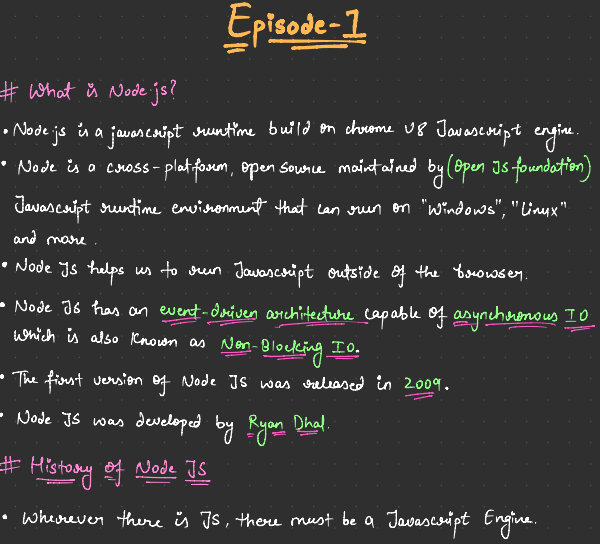 Episode-1
# What is Node js?
• Node js is a javascript runtime build on chrome V8 Javascript engine.
• Node is a cross-platform, open source maintained by (Open JS foundation)
Javascript runtime environment that can run on "Windows", "Linux"
and more.
• Node JS helps us to run Javascript outside of the browser.
• Node JS has an event-driven architecture capable of asynchronous IO
which is also known as Non-Blocking IO.
• The first version of Node JS was released in 2009.
• Node JS was developed by Ryan Dhal.
# History of Node JS
• Wherever there is JS, there must be a Javascript Engine.